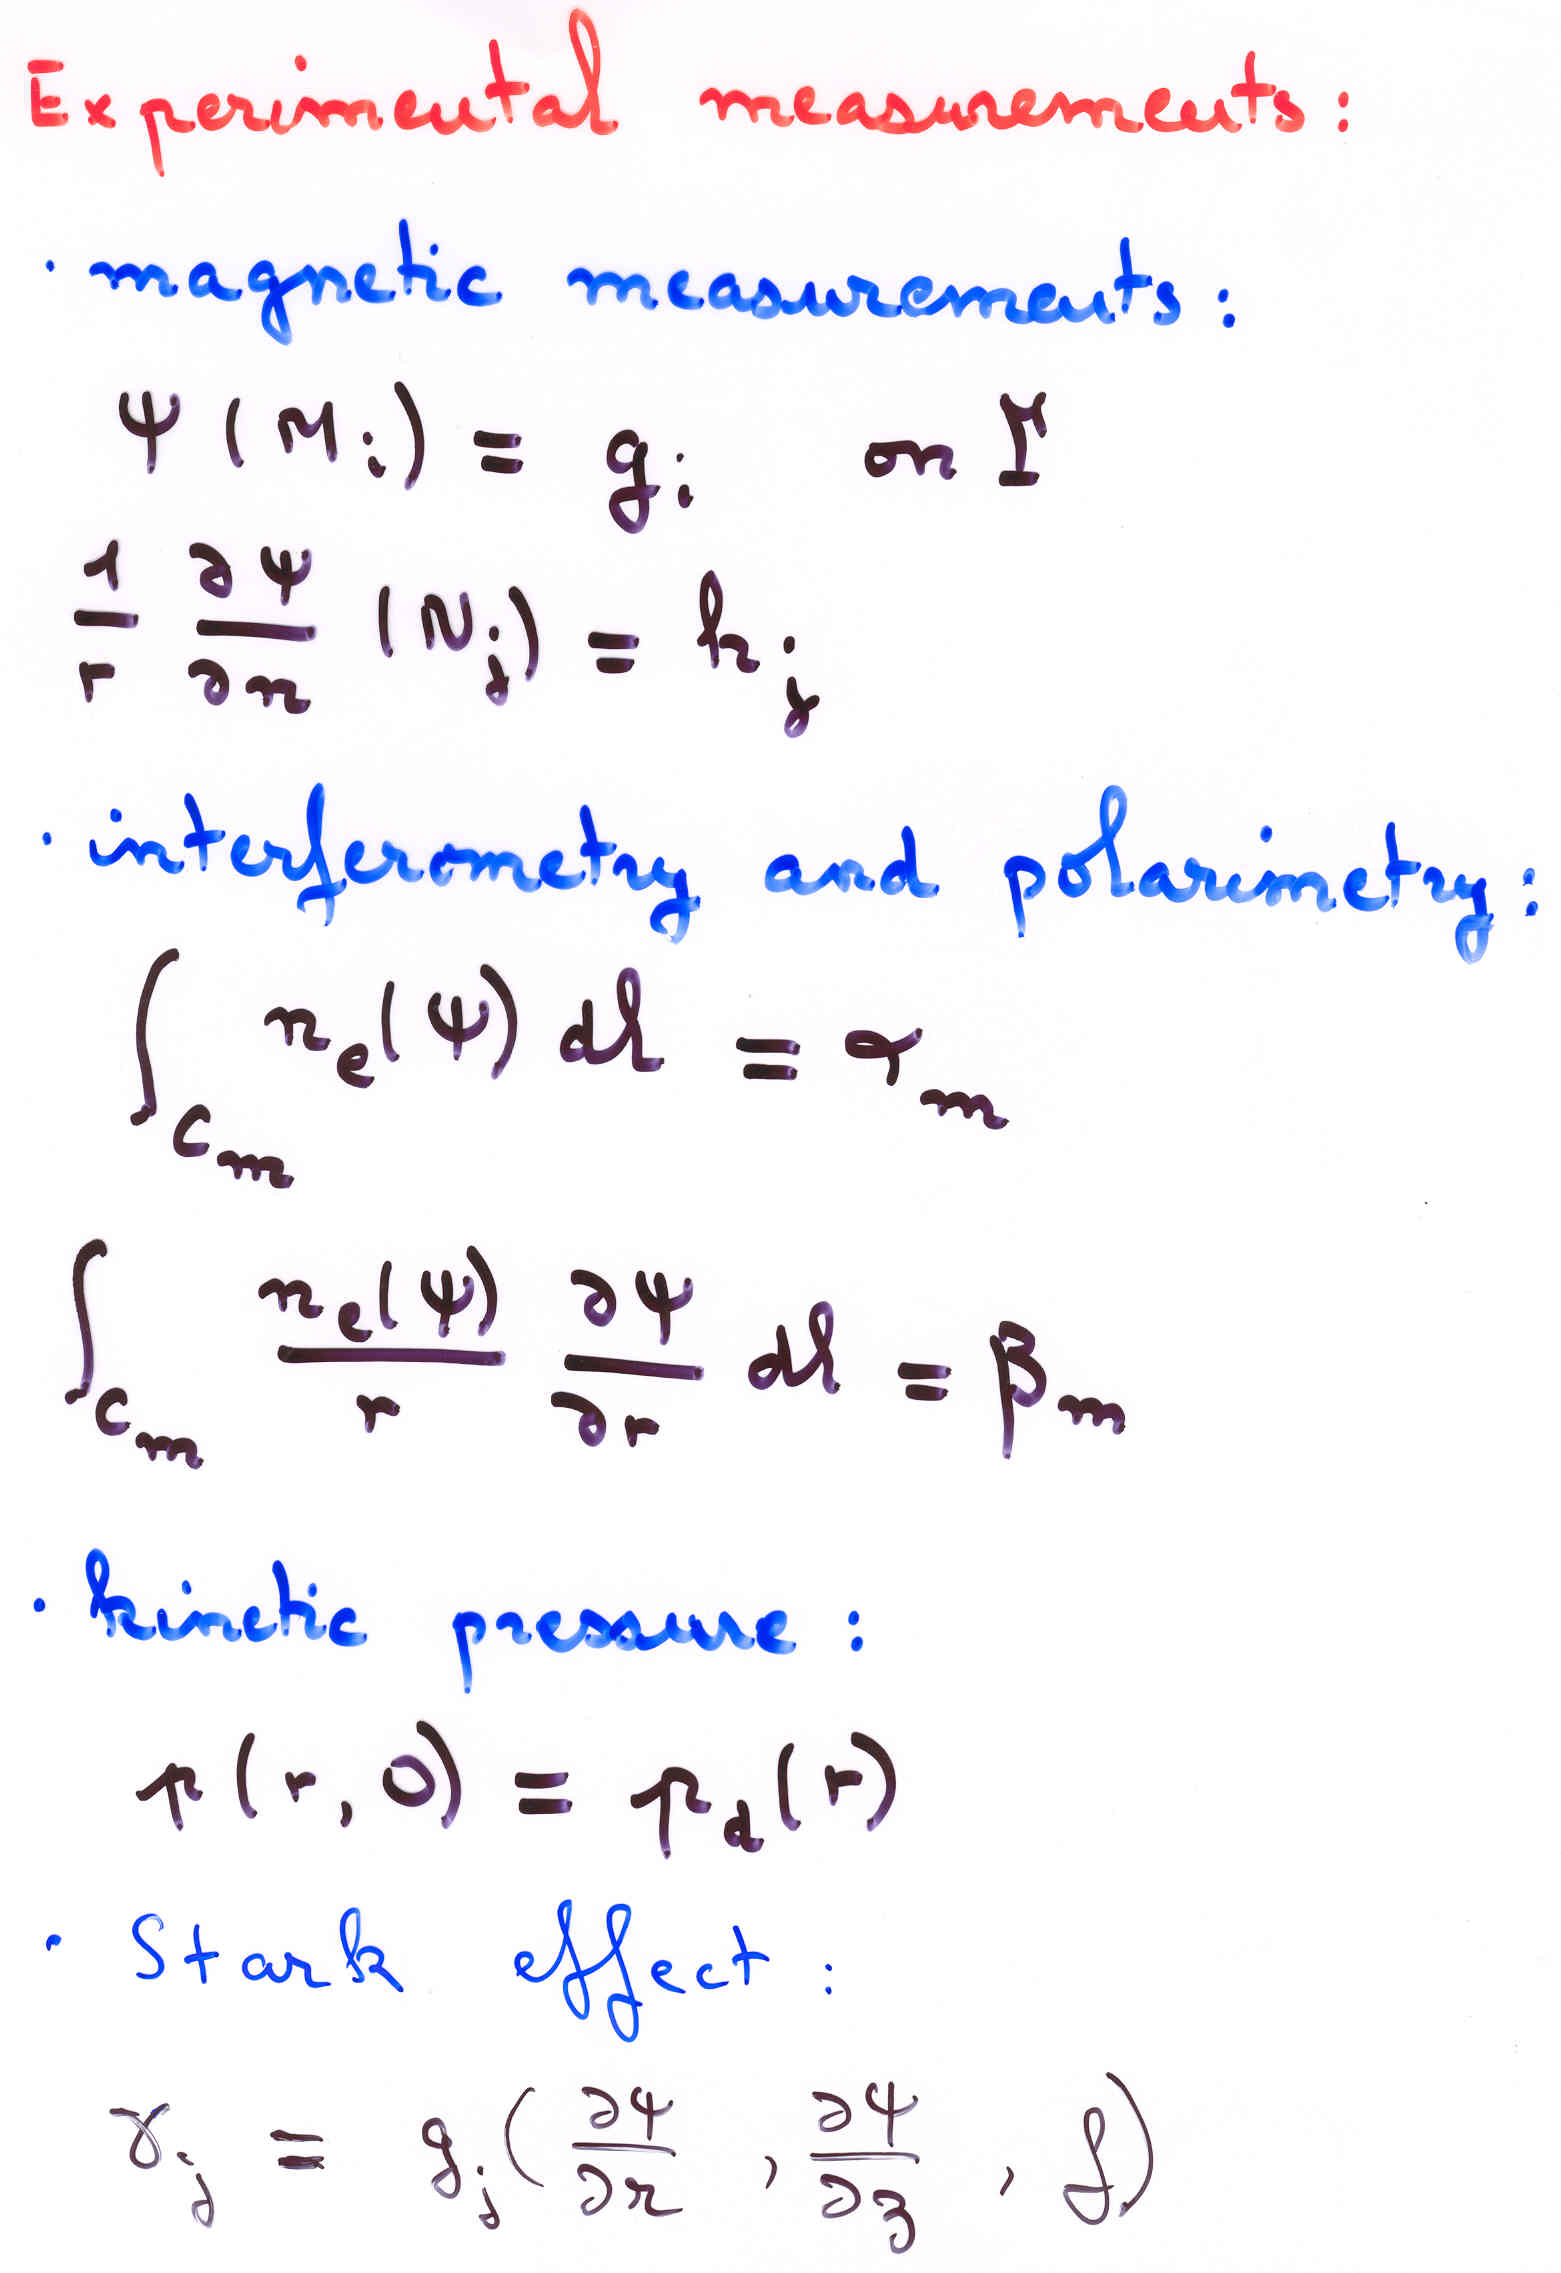 Experimental measurements:
· magnetic measurements:
Ψ(M_i) = g_i on Γ
1/r ∂Ψ/∂n (N_j) = h_j
· interferometry and polarimetry:
∫_{C_m} n_e(Ψ) dl = α_m
∫_{C_m} n_e(Ψ)/r ∂Ψ/∂r dl = β_m
· kinetic pressure:
p(r, 0) = p_d(r)
· Stark effect:
γ_j = g_j(∂Ψ/∂r, ∂Ψ/∂z, f)